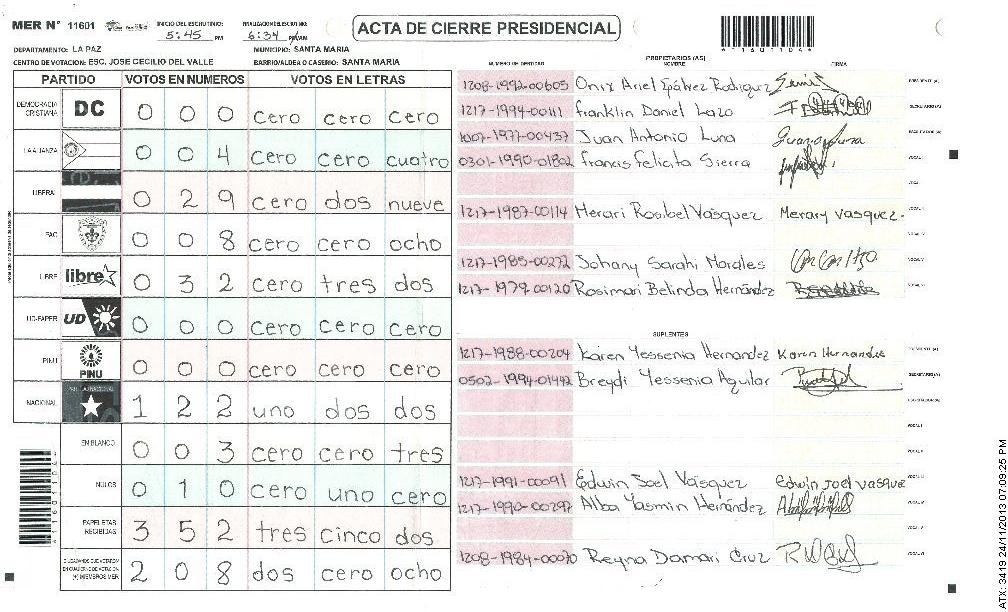 MER N° 11601 INICIO DEL ESCRUTINIO: 5:45 PM FINALIZACION DEL ESCRUTINIO: 6:34 PM/AM ACTA DE CIERRE PRESIDENCIAL
*11601104*
DEPARTAMENTO: LA PAZ MUNICIPIO: SANTA MARIA
CENTRO DE VOTACION: ESC. JOSE CECILIO DEL VALLE BARRIO/ALDEA O CASERIO: SANTA MARIA
PARTIDO VOTOS EN NUMEROS VOTOS EN LETRAS
DEMOCRACIA CRISTIANA DC 0 0 0 cero cero cero
LA ALIANZA 0 0 4 cero cero cuatro
LIBERAL 0 2 9 cero dos nueve
PAC 0 0 8 cero cero ocho
LIBRE libre 0 3 2 cero tres dos
UD-FAPER UD 0 0 0 cero cero cero
PINU PINU 0 0 0 cero cero cero
NACIONAL 1 2 2 uno dos dos
EN BLANCO 0 0 3 cero cero tres
NULOS 0 1 0 cero uno cero
PAPELETAS RECIBIDAS 3 5 2 tres cinco dos
CIUDADANOS QUE VOTARON EN CUADERNO DE VOTACION (+) MIEMBROS MER 2 0 8 dos cero ocho
PROPIETARIOS (AS)
NUMERO DE IDENTIDAD NOMBRE FIRMA
1208-1992-00605 Onix Ariel Gálvez Rodriguez PRESIDENTE (A)
1217-1994-00111 Franklin Daniel Lazo SECRETARIO (A)
1007-1977-00437 Juan Antonio Luna ESCRUTADOR (A)
0301-1990-01802 Francis Felicita Sierra VOCAL I
VOCAL II
1217-1987-00114 Merari Rosibel Vásquez Merary Vasquez VOCAL III
VOCAL IV
1217-1985-00272 Johany Sarahi Morales VOCAL V
1217-1979-00120 Rosimari Belinda Hernández VOCAL VI
SUPLENTES
1217-1988-00204 Karen Yessenia Hernandez Karen Hernandez PRESIDENTE (A)
0502-1994-01492 Breydi Yessenia Aguilar SECRETARIO (A)
ESCRUTADOR (A)
VOCAL I
VOCAL II
1217-1991-00091 Edwin Joel Vásquez edwin Joel vasquez VOCAL III
1217-1990-00297 Alba Yasmin Hernández VOCAL IV
VOCAL V
1208-1984-00070 Reyna Damari Cruz VOCAL VI
ATX: 3419 24/11/2013 07:09:25 PM